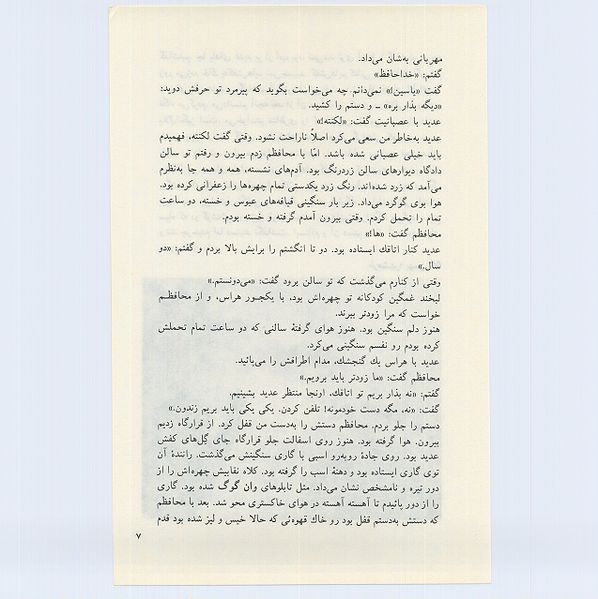 مهربانی به‌شان می‌داد.
گفتم: «خداحافظ»
گفت «یاسین!» نمی‌دانم چه می‌خواست بگوید که پیرمرد تو حرفش دوید:
«دیگه بذار بره» ـ و دستم را کشید.
عدید با عصبانیت گفت: «لکنته!»
عدید به‌خاطر من سعی می‌کرد اصلاً ناراحت نشود. وقتی گفت لکنته، فهمیدم
باید خیلی عصبانی شده باشد. امّا با محافظم زدم بیرون و رفتم تو سالن
دادگاه دیوارهای سالن زردرنگ بود. آدم‌های نشسته، همه و همه جا به‌نظرم
می‌آمد که زرد شده‌اند. رنگ زرد یکدستی تمام چهره‌ها را زعفرانی کرده بود.
هوا بوی گوگرد می‌داد. زیر بار سنگینی قیافه‌های عبوس و خسته، دو ساعت
تمام را تحمل کردم. وقتی بیرون آمدم گرفته و خسته بودم.
محافظم گفت: «ها!»
عدید کنار اتاقك ایستاده بود. دو تا انگشتم را برایش بالا بردم و گفتم: «دو
سال.»
وقتی از کنارم می‌گذشت که تو سالن برود گفت: «می‌دونستم.»
لبخند غمگین کودکانه تو چهره‌اش بود، با یکجـور هراس، و از محافظـم
خواست که مرا زودتر ببرند.
هنوز دلم سنگین بود. هنوز هوای گرفتهٔ سالنی که دو ساعت تمام تحملش
کرده بودم رو نفسم سنگینی می‌کرد.
عدید با هراس یك گنجشك، مدام اطرافش را می‌پائید.
محافظم گفت: «ما زودتر باید برویم.»
گفتم: «نه بذار بریم تو اتاقك، اونجا منتظر عدید بشینیم.
گفت: «نه، مگه دست خودمونه! تلفن کردن. یکی یکی باید بریم زندون.»
دستم را جلو بردم. محافظم دستش را به‌دست من قفل کرد. از قرارگاه زدیم
بیرون. هوا گرفته بود. هنوز روی اسفالت جلو قرارگاه جای گِل‌های کفش
عدید بود. روی جادهٔ روبه‌رو اسبی با گاری سنگینش می‌گذشت. رانندهٔ آن
توی گاری ایستاده بود و دهنهٔ اسب را گرفته بود. کلاه نقابیش چهره‌اش را از
دور تیره و نامشخص نشان می‌داد. مثل تابلوهای وان گوگ شده بود. گاری
را از دور پائیدم تا آهسته آهسته در هوای خاکستری محو شد. بعد با محافظم
که دستش به‌دستم قفل بود رو خاك قهوه‌ئی که حالا خیس و لیز شده بود قدم
۷